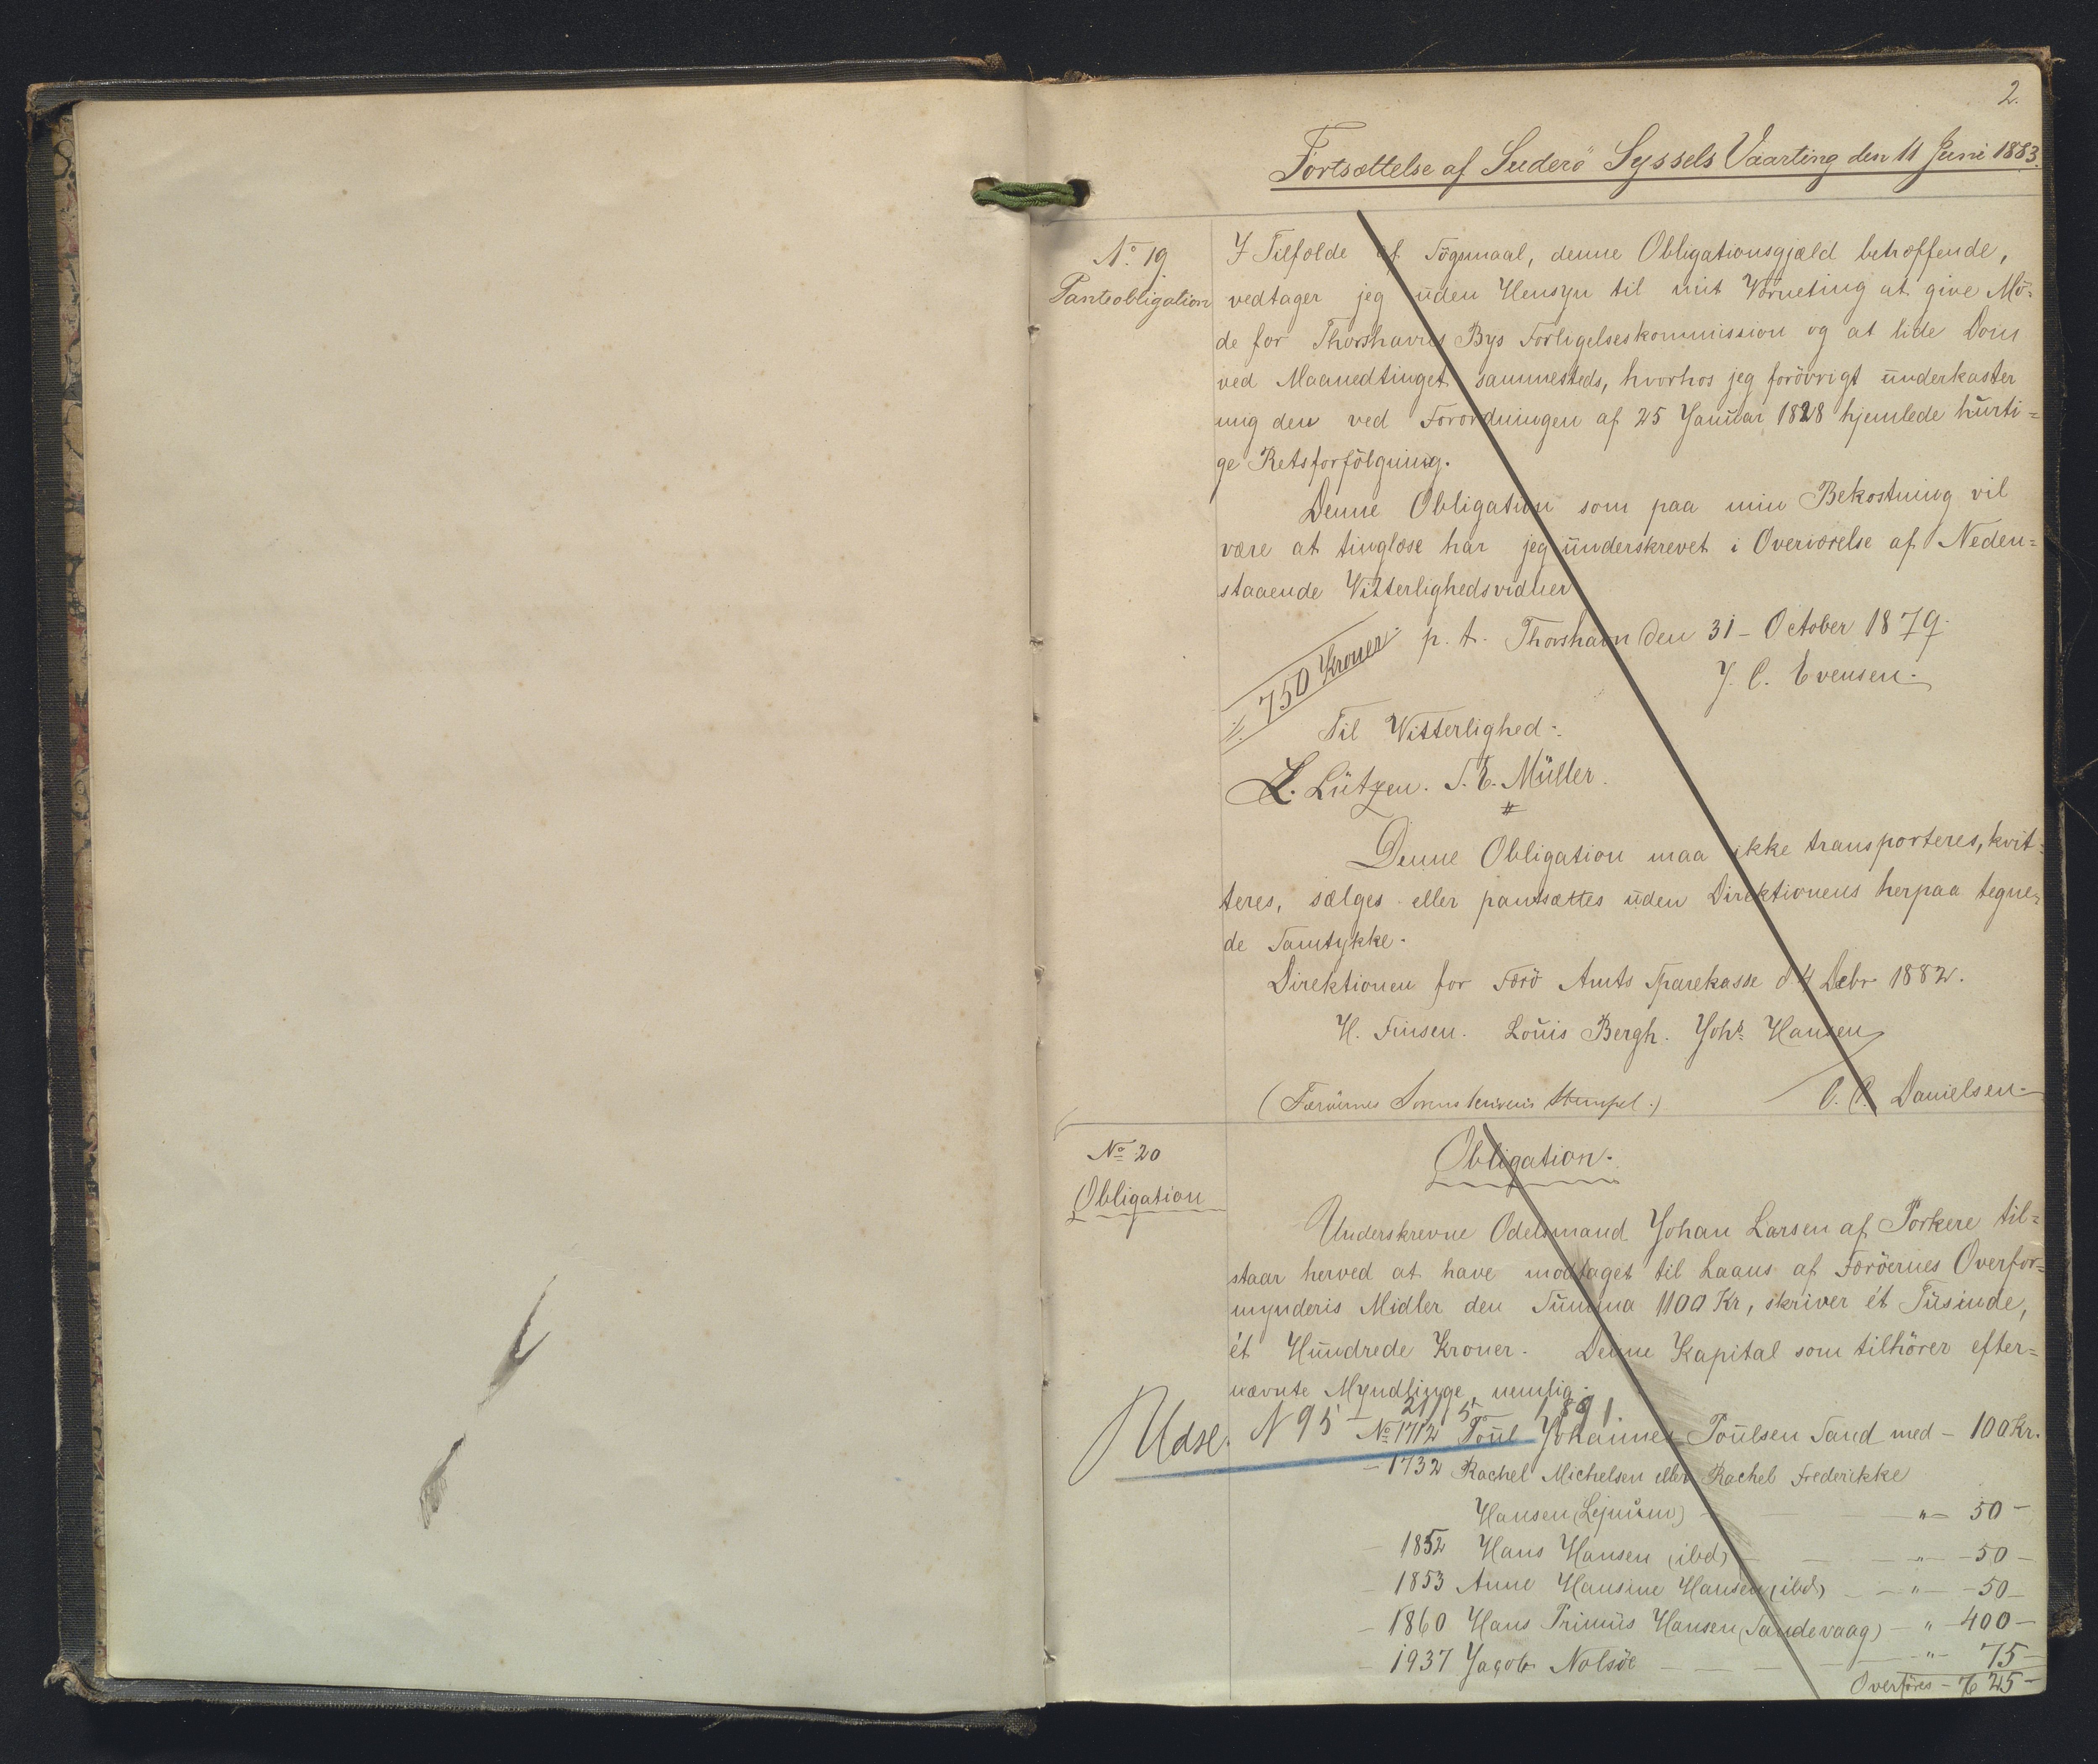 2.
Fortsættelse af Suderö Syssels Vaarting den 11 Juni 1883.
No. 19.
Panteobligation
I Tilfælde af Sögsmaal, denne Obligationsgjæld betræffende,
vedtager jeg uden Hensyn til mit Værneting at give Mö-
de for Thorshavns Bys Forligelseskommission og at lide Dom
ved Maanedtinget sammesteds, hvorhos jeg forövrigt underkaster
mig den ved Forordningen af 25 Januar 1828 hjemlede hurti=
ge Retsforfölgning.
Denne Obligation som paa min Bekostning vil
være at tinglæse har jeg underskrevet i Overværelse af Neden=
staaende Vitterlighedsvidner
p. t. Thorshavn den 31 - October 1879.
750 Kroner
J. C. Evensen.
Til Vitterlighed:
L. Lützen. S. E. Müller.
Denne Obligation maa ikke transporteres, kvit=
teres, sælges eller pantsættes uden Direktionens herpaa tegne=
de Samtykke.
Direktionen for Færö Amts Sparekasse d 4 Debr 1882.
H. Finsen. Louis Bergh. Johs. Hansen
C. P. Danielsen
(Færöernes Sorenskriveris Stempel.)
No 20
Obligation
Obligation.
Underskrevne Odelsmand Johan Larsen af Porkere til=
staar herved at have modtaget til Laans af Færöernes Overfor=
mynderis Midler den Summa 1100 Kr, skriver ét Tusinde,
ét Hundrede Kroner. Denne Kapital som tilhörer efter=
nævnte Myndlinge, nemlig:
Udsl. N 95 - 21/5 1891.
No 1712 Poul Johannes Poulsen Sand med - 100 Kr.
- 1732 Rachel Michelsen eller Rachel Frederikke
Hansen (Lejnum) - " - 50 -
- 1852 Hans Hansen (ibd) - " - 50 -
- 1853 Anne Hansine Hansen (ibd) - " - 50 -
- 1860 Hans Primus Hansen (Sandevaag) - " - 400 -
- 1937 Jacob Nolsöe - " - 75 -
Overföres - 725 -